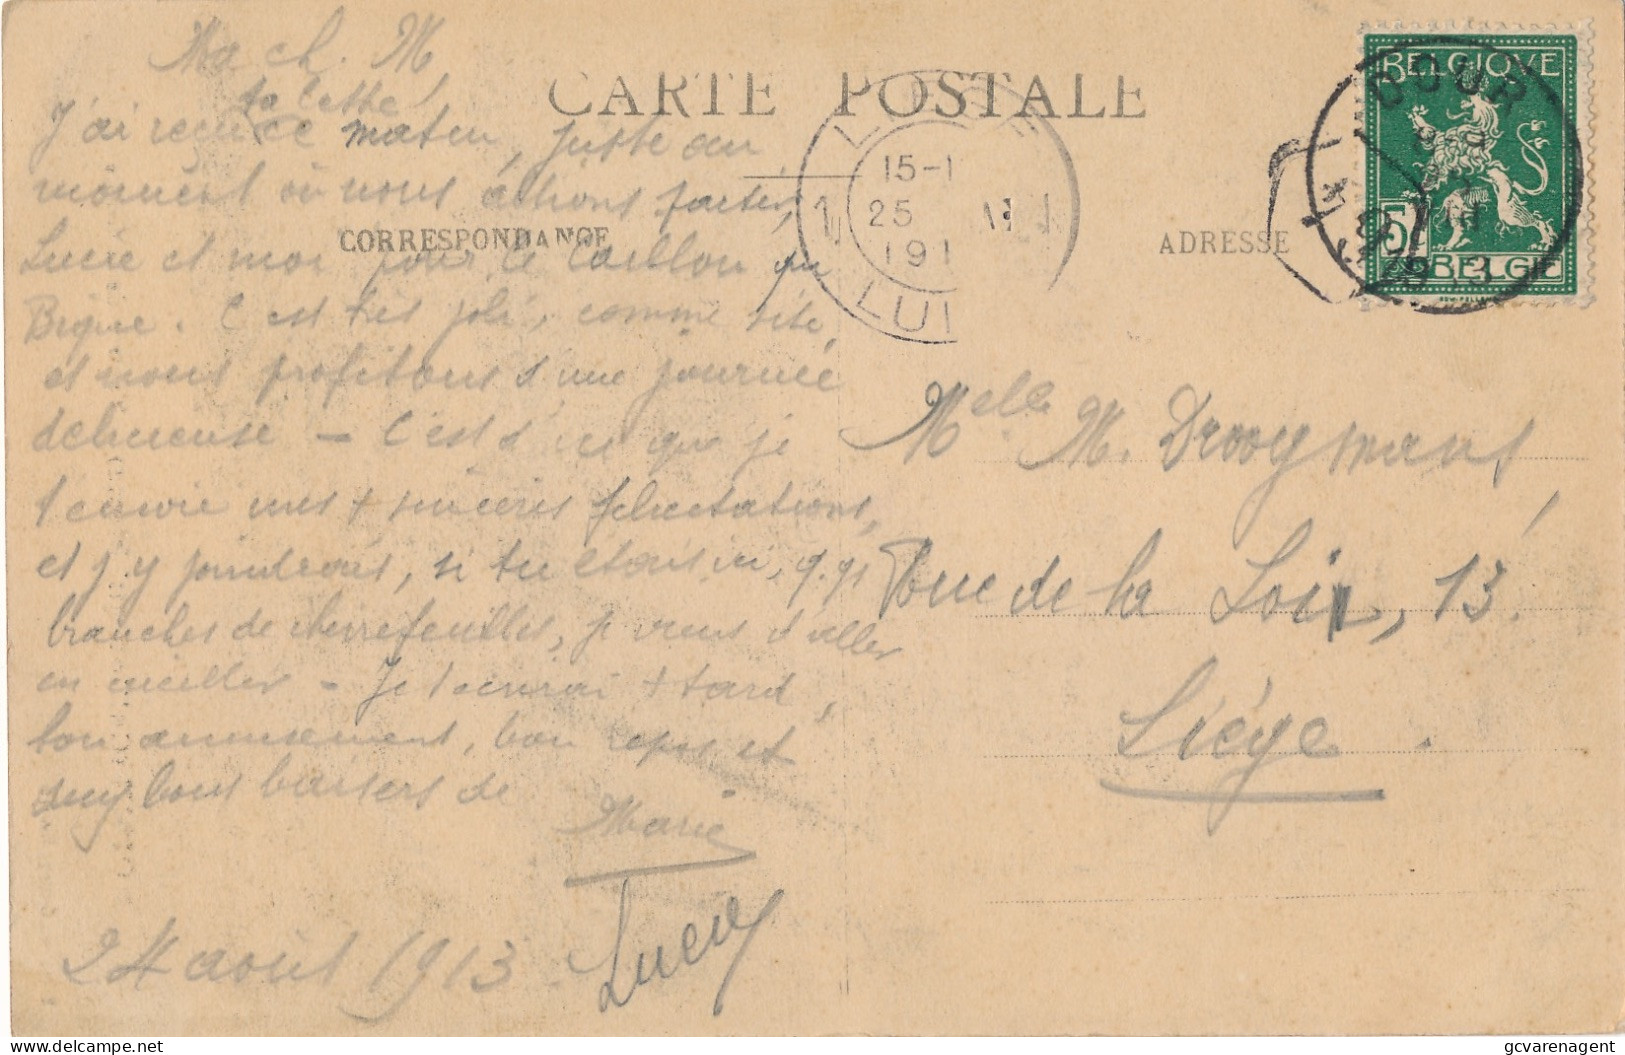 Ma ch. M
J'ai reçu ta lettre ce matin, juste au
moment où nous étions partir,
Lucie et moi pour le Caillou qui
Bique. C'est très joli, comme site,
et nous profitons d'une journée
délicieuse — C'est d'ici que je
t'envoie mes + sincères félicitations,
et j'y joindrais, si tu étais ici, q.qs
branches de chèvrefeuilles, je viens d'aller
en cueillir — Je t'écrirai + tard,
bon amusement, bon repos et
bons baisers de
Marie
Lucy
24 août 1913
CARTE POSTALE
CORRESPONDANCE
ADRESSE
15-1
25
191
BELGIQUE
5
BELGIE
DOUR
Melle M. Drooymans,
Rue de la Loi, 13.
Liége.
gcvarenagent
delcampe.net